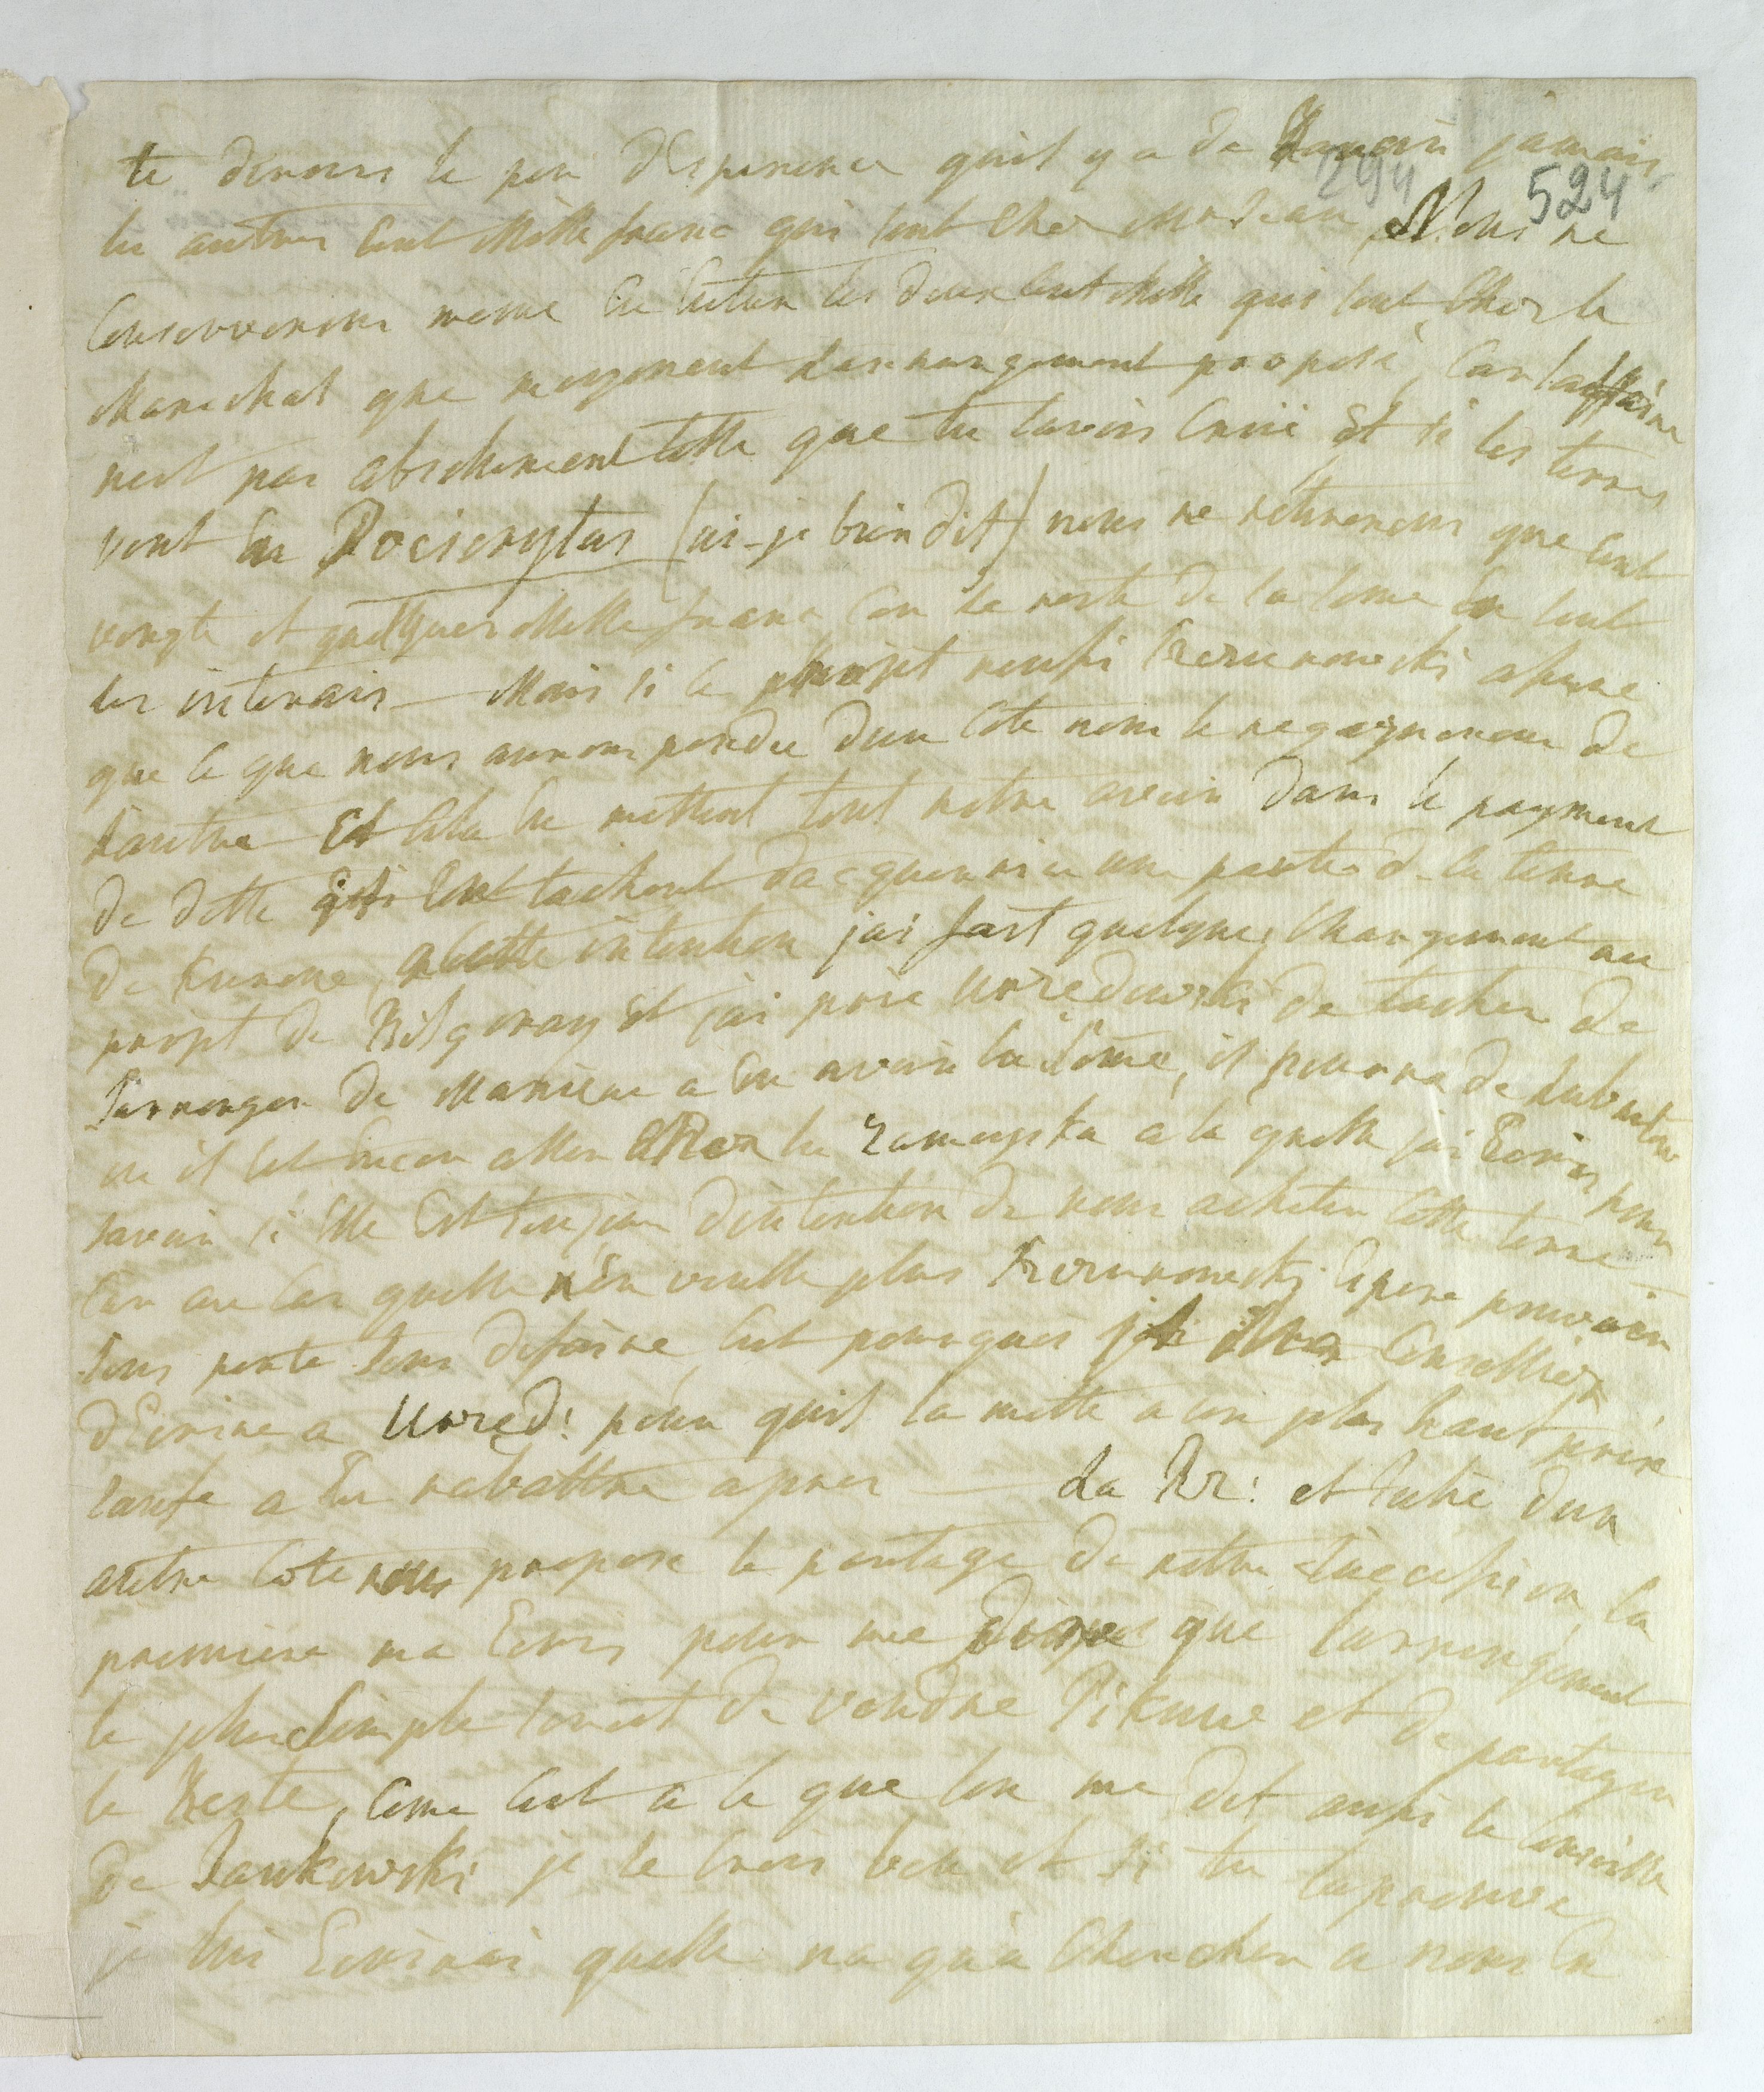 te dirons le peu d'esperence quil y a de ravoir jamais
294 524
les autres Cent Mille franc qui sont Chez Md Jean, Nous ne
Conserverons meme les deux Cent Mille qui sont Chez le
Marechal que moyenent larrangement proposé, Car laffaire
nest pas absolument telle que tu lavois Crüe Et si les terres
vont en Pocierytas (ai-je bien dit) nous ne retirerons que Cent
vengts et quelques Mille franc Car le reste de la some en sont
les interais — Mais si le projet reussi espere
que ce que nous aurons perdu dun Coté nous le regagnerons de
l'autre — Et Cela en mettent tout notre avoir dans le payment
de dette Et en tachent dacquerrir une partie de la terre
de , a Cette intention jai fait quelques Changement au
projet de Bilgoray Et jai prié Urzedowski de tacher de
Sarrenger de Maniere a En avoir la some, il pourra de
ou il Est allez Chez la Zamoyska a la quelle jai Ecris pour
savoir si Elle Est toujour dintention de nous acheter Cette terre —
Car au Cas quelle n'en veuille plus espere pouvoir
sous perte sous defaire, Cest pourquoi
d'Ecrire a Urzed: pour quil la mette a un plus haut prix
saufe a En rabattre apres — La Kz: et dun
autre Coté nous propose le partage de notre succession, la
premiere ma Ecris pour me dire que larrengement
le plus Simple seroit de vendre Pikuce et de partager
le Reste, Come Cest a ce que lon me dit aussi le Conseille
de Jankowski je le Crois bon et si tu laprouve
je lui Ecrirai quelle na qu'a Chercher a nous En